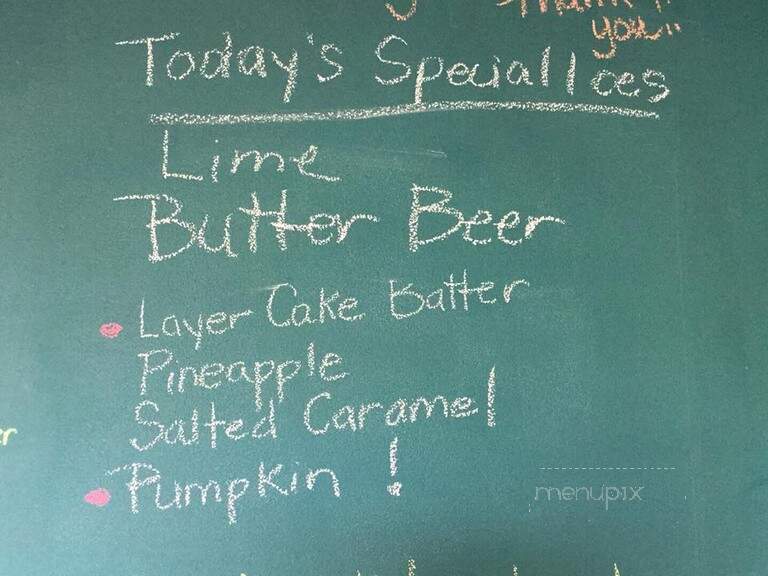 Thank
you..
Today's Special Ices
Lime
Butter Beer
Layer Cake Batter
Pineapple
Salted Caramel
Pumpkin !
menupix